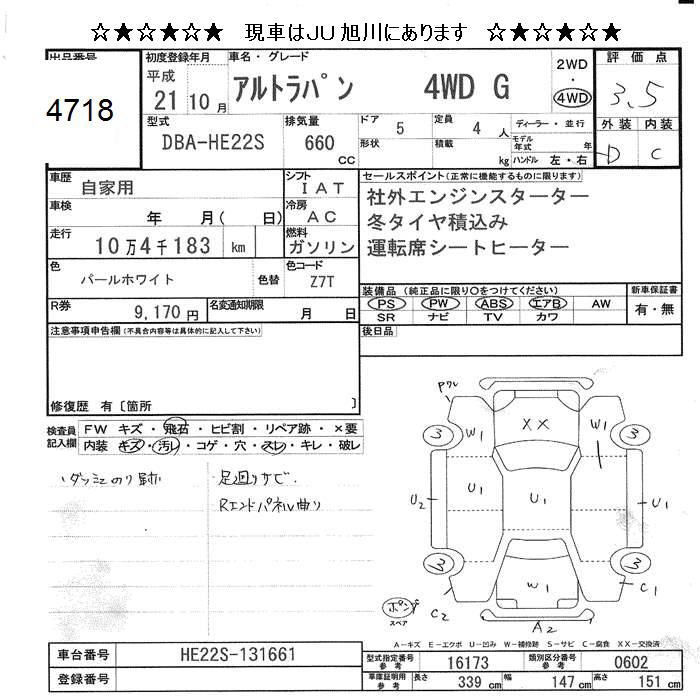 ☆★☆★☆★　現車はＪＵ旭川にあります　☆★☆★☆★
出品番号
4718
初度登録年月
平成
21 10 月
車名・グレード
アルトラパン　4WD G
2WD
・
4WD
評価点
3.5
外装 内装
D C
型式
DBA-HE22S
排気量
660
CC
ドア
5
定員
4 人
形状
積載
kg
ディーラー・並行
モデル
年式 年
ハンドル 左・右
車歴
自家用
シフト
I A T
車検
年 月( 日)
冷房
A C
走行
10 万 4 千 183 km
燃料
ガソリン
色
パールホワイト
色替
色コード
Z7T
セールスポイント(正常に機能するものに限ります)
社外エンジンスターター
冬タイヤ積込み
運転席シートヒーター
装備品 (純正品に限り○をつけてください)
PS PW ABS エアB AW
SR ナビ TV カワ
新車保証書
有・無
R券
9,170 円
名変通知期限
月 日
後日品
注意事項申告欄(不具合内容等は具体的に記入して下さい)
修復歴 有〔箇所 〕
検査員
記入欄
FW キズ・飛石・ヒビ割・リペア跡・×要
内装 キズ・汚レ・コゲ・穴・スレ・キレ・破レ
ダッシュのり跡
足廻りサビ
Rエンドパネル曲り
3 W1 XX W1 3
U2 U1 U1 U1
3 W1 3
C2 C1
A2
スペア
A－キズ E－エクボ U－凹み W－補修跡 S－サビ C－腐食 XX－交換済
車台番号
HE22S-131661
登録番号
型式指定番号
参考
16173
類別区分番号
参考
0602
車庫証明用
参考
長さ
339 cm
幅
147 cm
高さ
151 cm